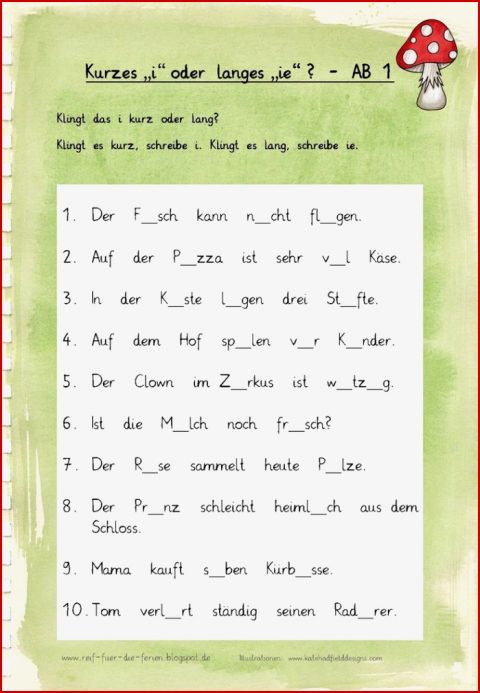 Kurzes „i“ oder langes „ie“ ? - AB 1
Klingt das i kurz oder lang?
Klingt es kurz, schreibe i. Klingt es lang, schreibe ie.
1. Der F__sch kann n__cht fl__gen.
2. Auf der P__zza ist sehr v__l Käse.
3. In der K__ste l__gen drei St__fte.
4. Auf dem Hof sp__len v__r K__nder.
5. Der Clown im Z__rkus ist w__tz__g.
6. Ist die M__lch noch fr__sch?
7. Der R__se sammelt heute P__lze.
8. Der Pr__nz schleicht heiml__ch aus dem
Schloss.
9. Mama kauft s__ben Kürb__sse.
10. Tom verl__rt ständig seinen Rad__rer.
www.reif-fuer-die-ferien.blogspot.de Illustrationen: www.katehadfielddesigns.com